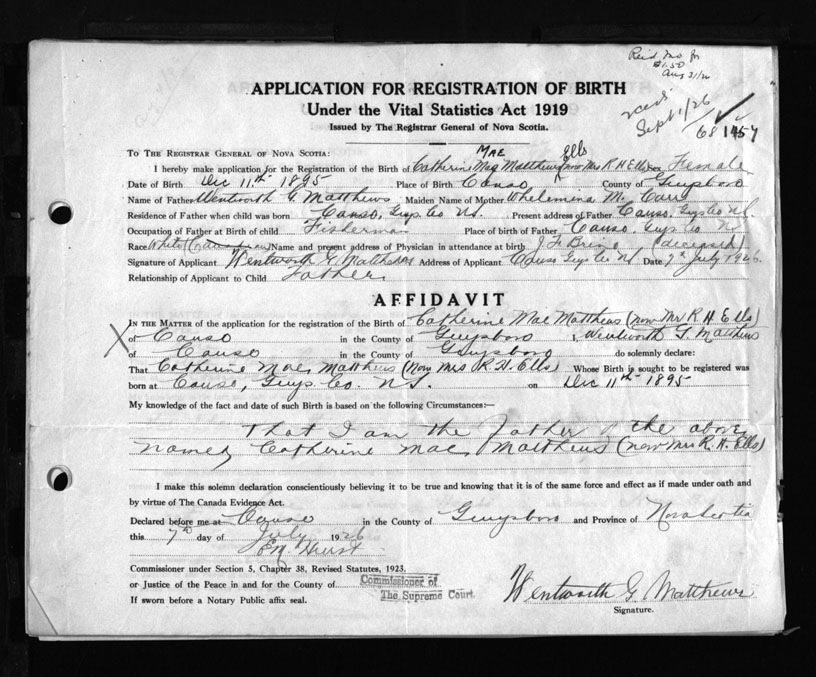 Aug 31/26
$1.50
Sept 1/26
681457
APPLICATION FOR REGISTRATION OF BIRTH
Under the Vital Statistics Act 1919
Issued by The Registrar General of Nova Scotia.
MAE Ells
To The Registrar General of Nova Scotia:
I hereby make application for the Registration of the Birth of Catherine Mae Matthews (now Mrs R H Ells) sex Female
Date of Birth Dec 11th 1895 Place of Birth Canso County of Guysboro
Name of Father Wentworth G. Matthews Maiden Name of Mother Whelemina M. Carr
Residence of Father when child was born Canso, Guys. Co NS. Present address of Father Canso, Guys Co NS.
Occupation of Father at Birth of child Fisherman Place of birth of Father Canso, Guys. Co NS
Race White (Canadian) Name and present address of Physician in attendance at birth J. F. (deceased)
Signature of Applicant Wentworth G. Matthews Address of Applicant Canso Guys Co NS Date 7th July 1926.
Relationship of Applicant to Child Father
AFFIDAVIT
In the Matter of the application for the registration of the Birth of Catherine Mae Matthews (now Mrs R H Ells)
X of Canso in the County of Guysboro I, Wentworth G. Matthews
of Canso in the County of Guysboro do solemnly declare:
That Catherine Mae Matthews (Now Mrs R. H. Ells) Whose Birth is sought to be registered was
born at Canso, Guys. Co. NS. on Dec 11th 1895
My knowledge of the fact and date of such Birth is based on the following Circumstances:—
That I am the Father of the above
named Catherine Mae Matthews (now Mrs R. H. Ells)
I make this solemn declaration conscientiously believing it to be true and knowing that it is of the same force and effect as if made under oath and
by virtue of The Canada Evidence Act.
Declared before me at Canso in the County of Guysboro and Province of Nova Scotia
this 7th day of July 1926
Hurst
Commissioner under Section 5, Chapter 38, Revised Statutes, 1923.
or Justice of the Peace in and for the County of Commissioner of
If sworn before a Notary Public affix seal. The Supreme Court
Wentworth G. Matthews
Signature.